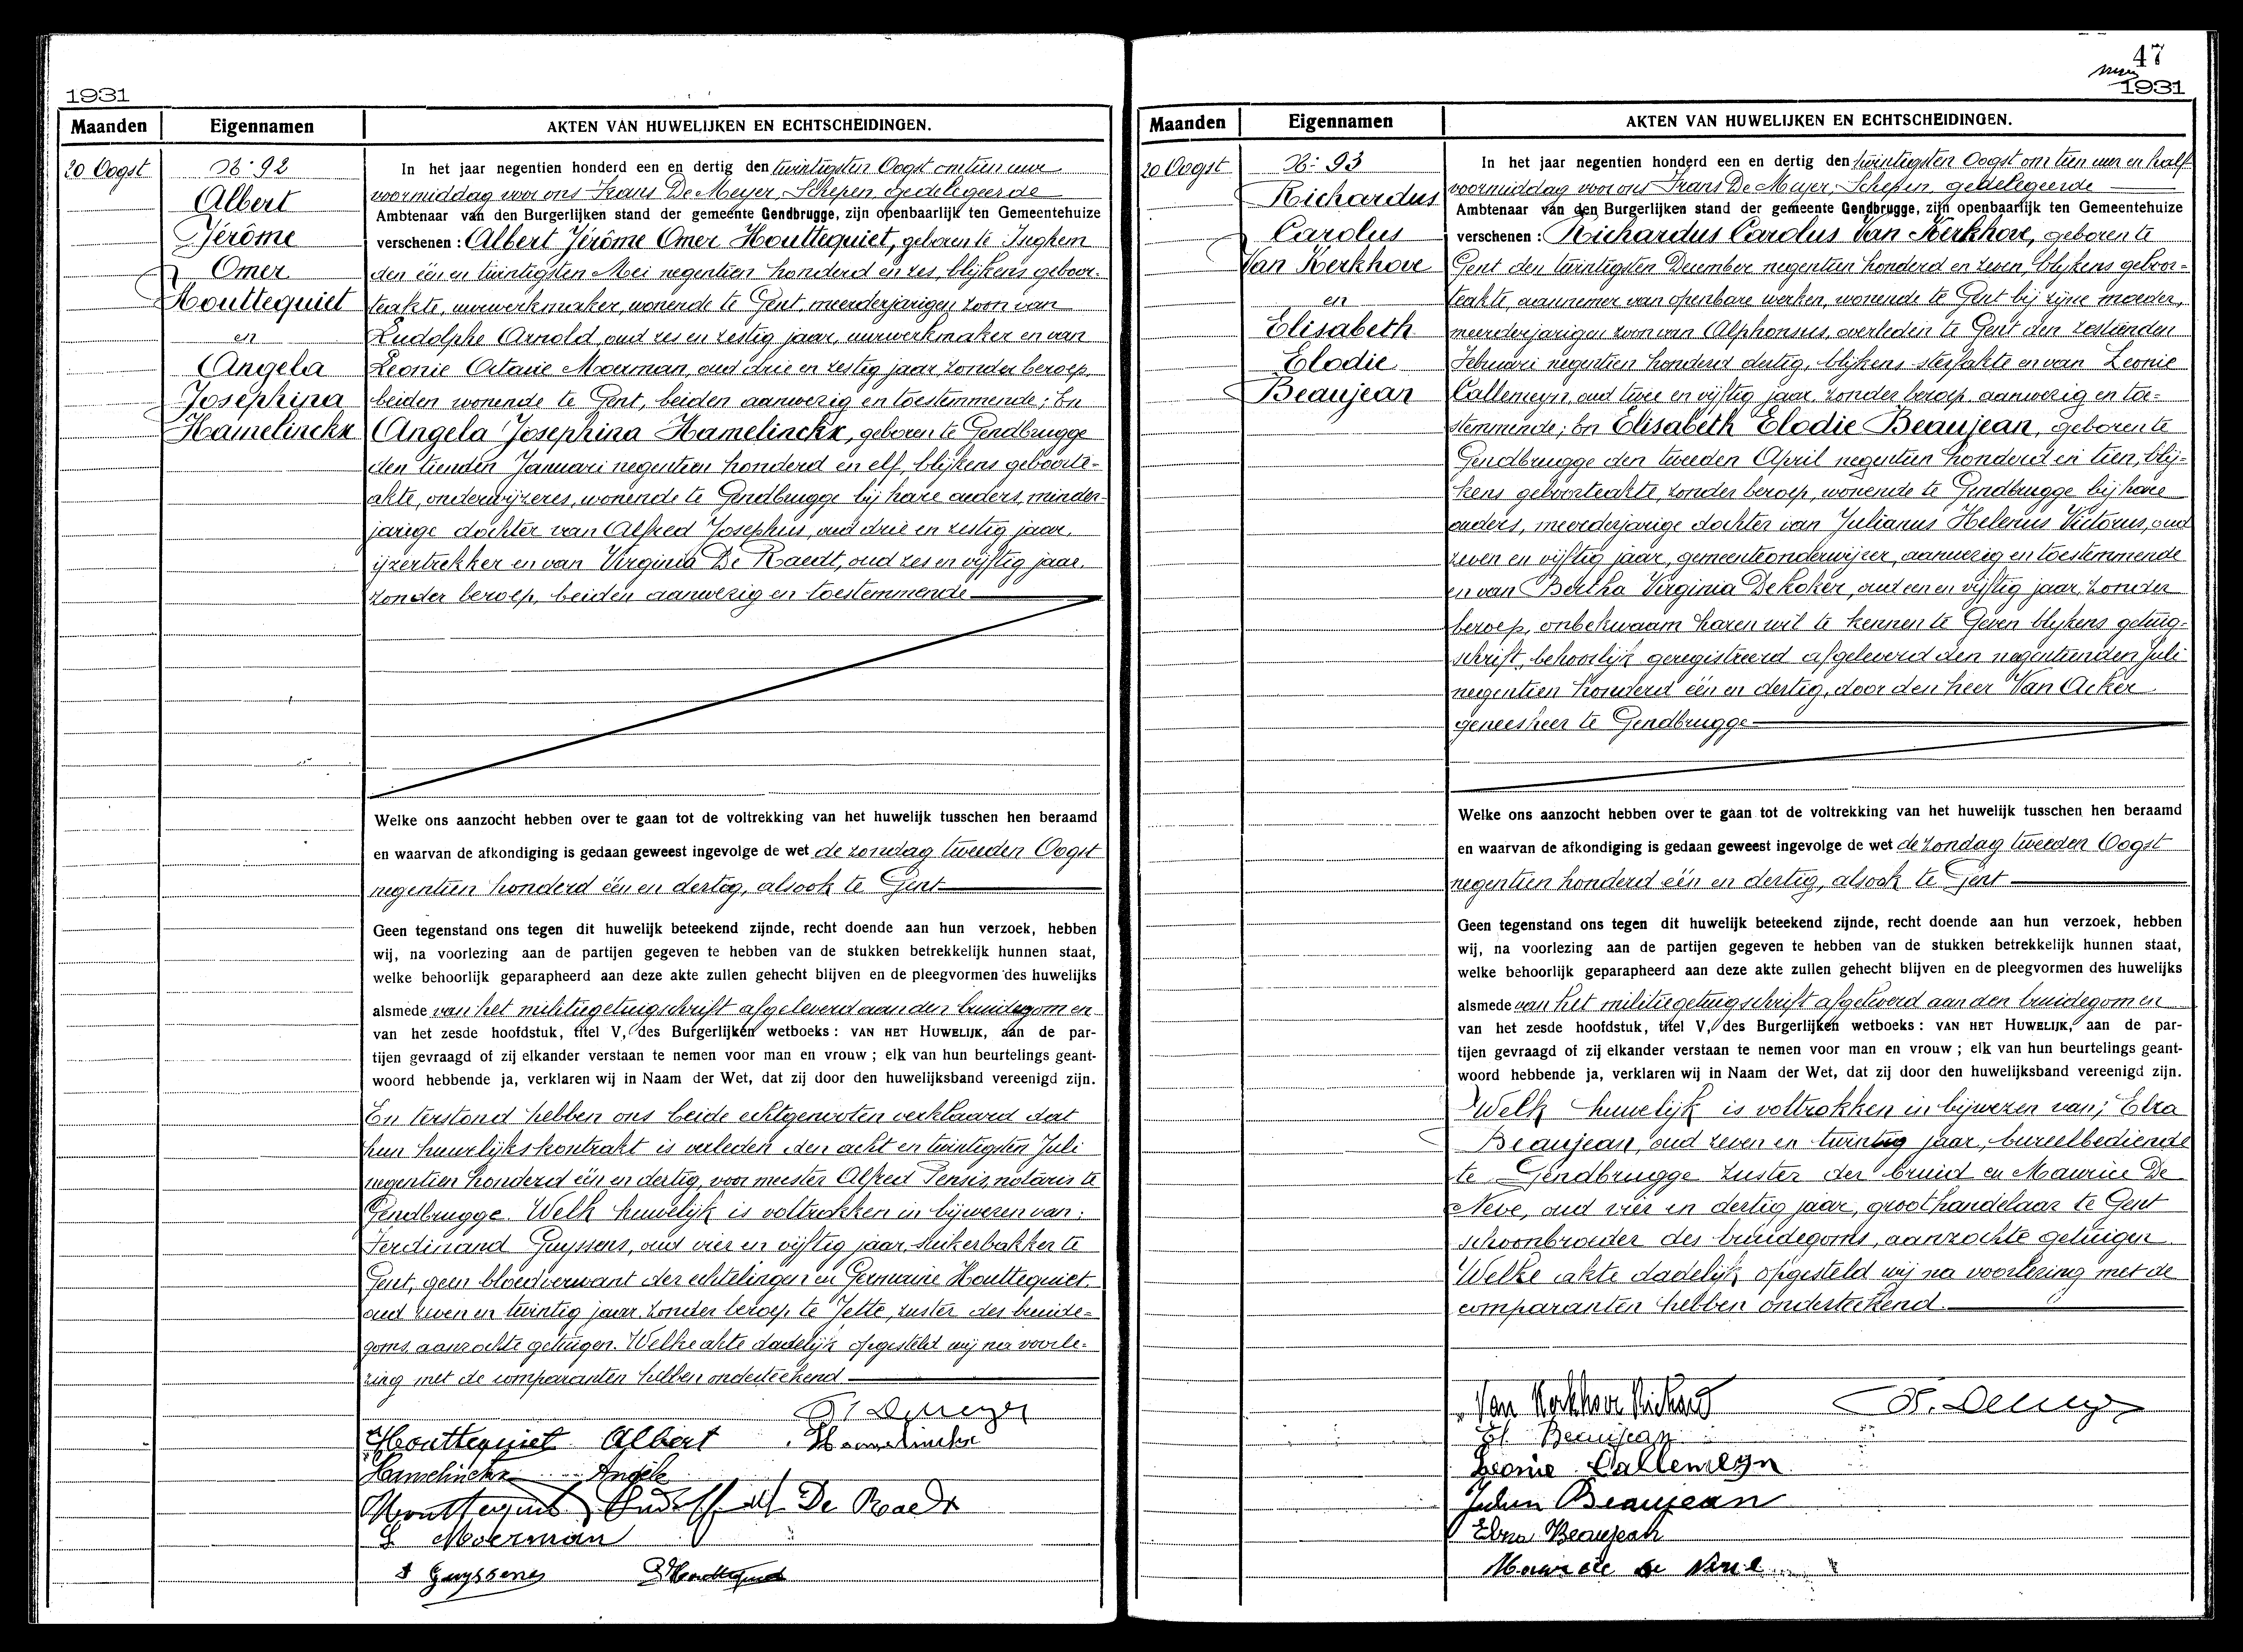 1931
Maanden Eigennamen AKTEN VAN HUWELIJKEN EN ECHTSCHEIDINGEN.
20 Oogst
N: 92
Albert
Jérôme
Omer
Houttequiet
en
Angela
Josephina
Hamelinckx
In het jaar negentien honderd een en dertig den twintigsten Oogst om tien uur
voormiddag voor ons Frans De Meyer, Schepen, gedelegeerde
Ambtenaar van den Burgerlijken stand der gemeente Gendbrugge, zijn openbaarlijk ten Gemeentehuize
verschenen : Albert Jérôme Omer Houttequiet, geboren te Iseghem
den één en twintigsten Mei negentien honderd en zes, blijkens geboor-
teakte, uurwerkmaker, wonende te Gent, meerderjarigen zoon van
Rudolphe Arnold, oud zes en zestig jaar, uurwerkmaker en van
Leonie Octavie Moerman, oud drie en zestig jaar, zonder beroep,
beiden wonende te Gent, beiden aanwezig en toestemmende; En
Angela Josephina Hamelinckx, geboren te Gendbrugge
den tienden Januari negentien honderd en elf, blijkens geboorte-
akte, onderwijzeres, wonende te Gendbrugge bij hare ouders, minder-
jarige dochter van Alfred Josephus, oud drie en zestig jaar,
ijzertrekker en van Virginia De Raedt, oud zes en vijftig jaar,
zonder beroep, beiden aanwezig en toestemmende
Welke ons aanzocht hebben over te gaan tot de voltrekking van het huwelijk tusschen hen beraamd
en waarvan de afkondiging is gedaan geweest ingevolge de wet de zondag tweeden Oogst
negentien honderd één en dertig, alsook te Gent
Geen tegenstand ons tegen dit huwelijk beteekend zijnde, recht doende aan hun verzoek, hebben
wij, na voorlezing aan de partijen gegeven te hebben van de stukken betrekkelijk hunnen staat,
welke behoorlijk geparapheerd aan deze akte zullen gehecht blijven en de pleegvormen des huwelijks
alsmede van het militiegetuigschrift afgeleverd aan den bruidegom en
van het zesde hoofdstuk, titel V, des Burgerlijken wetboeks : VAN HET HUWELIJK, aan de par-
tijen gevraagd of zij elkander verstaan te nemen voor man en vrouw ; elk van hun beurtelings geant-
woord hebbende ja, verklaren wij in Naam der Wet, dat zij door den huwelijksband vereenigd zijn.
En terstond hebben ons beide echtgenooten verklaard dat
hun huwelijkskontrakt is verleden den acht en twintigsten Juli
negentien honderd één en dertig, voor meester Alfred Persis, notaris te
Gendbrugge. Welk huwelijk is voltrokken in bijwezen van:
Ferdinand Guyssens, oud vier en vijftig jaar, suikerbakker te
Gent, geen bloedverwant der echtelingen en Germaine Houttequiet,
oud zeven en twintig jaar, zonder beroep te Jette, zuster des bruide-
goms, aanzochte getuigen. Welke akte dadelijk opgesteld wij na voorle-
zing met de comparanten hebben onderteekend
F. Demeyer
Houttequiet Albert Hamelinckx
Hamelinckx Angèle
Houttequiet Rudolf De Raedt
L Moerman
F Guyssens G Houttequiet
47
1931
Maanden Eigennamen AKTEN VAN HUWELIJKEN EN ECHTSCHEIDINGEN.
20 Oogst
N: 93
Richardus
Carolus
Van Kerkhove
en
Elisabeth
Elodie
Beaujean
In het jaar negentien honderd een en dertig den twintigsten Oogst om tien uur en half
voormiddag voor ons Frans De Meyer, Schepen, gedelegeerde
Ambtenaar van den Burgerlijken stand der gemeente Gendbrugge, zijn openbaarlijk ten Gemeentehuize
verschenen : Richardus Carolus Van Kerkhove, geboren te
Gent den twintigsten December negentien honderd en zeven, blijkens geboor-
teakte, aannemer van openbare werken, wonende te Gent bij zijne moeder,
meerderjarigen zoon van Alphonsus, overleden te Gent den zestienden
Februari negentien honderd dertig, blijkens sterfakte en van Leonie
Callemeyn, oud twee en vijftig jaar, zonder beroep, aanwezig en toe-
stemmende; En Elisabeth Elodie Beaujean, geboren te
Gendbrugge den tweeden April negentien honderd en tien, blij-
kens geboorteakte, zonder beroep, wonende te Gendbrugge bij hare
ouders, meerderjarige dochter van Julianus Helenus Victorus, oud
zeven en vijftig jaar, gemeenteonderwijzer, aanwezig en toestemmende
en van Bertha Virginia De Koker, oud een en vijftig jaar, zonder
beroep, onbekwaam haren wil te kennen te geven blykens getuig-
schrift, behoorlijk geregistreerd afgeleverd den negentienden Juli
negentien honderd één en dertig, door den heer Van Acker
geneesheer te Gendbrugge
Welke ons aanzocht hebben over te gaan tot de voltrekking van het huwelijk tusschen hen beraamd
en waarvan de afkondiging is gedaan geweest ingevolge de wet de zondag tweeden Oogst
negentien honderd één en dertig, alsook te Gent
Geen tegenstand ons tegen dit huwelijk beteekend zijnde, recht doende aan hun verzoek, hebben
wij, na voorlezing aan de partijen gegeven te hebben van de stukken betrekkelijk hunnen staat,
welke behoorlijk geparapheerd aan deze akte zullen gehecht blijven en de pleegvormen des huwelijks
alsmede van het militiegetuigschrift afgeleverd aan den bruidegom en
van het zesde hoofdstuk, titel V, des Burgerlijken wetboeks : VAN HET HUWELIJK, aan de par-
tijen gevraagd of zij elkander verstaan te nemen voor man en vrouw ; elk van hun beurtelings geant-
woord hebbende ja, verklaren wij in Naam der Wet, dat zij door den huwelijksband vereenigd zijn.
Welk huwelijk is voltrokken in bijwezen van; Elza
Beaujean, oud zeven en twintig jaar, bureelbediende
te Gendbrugge zuster der bruid en Maurice De
Neve, oud vier en dertig jaar, groothandelaar te Gent
schoonbroeder des bruidegoms, aanzochte getuigen
Welke akte dadelijk opgesteld wij na voorlezing met de
comparanten hebben onderteekend.
Van Kerkhove Richard F. Demeyer
El. Beaujean
Leonie Callemeyn
Julien Beaujean
Elza Beaujean
Maurice de Neve